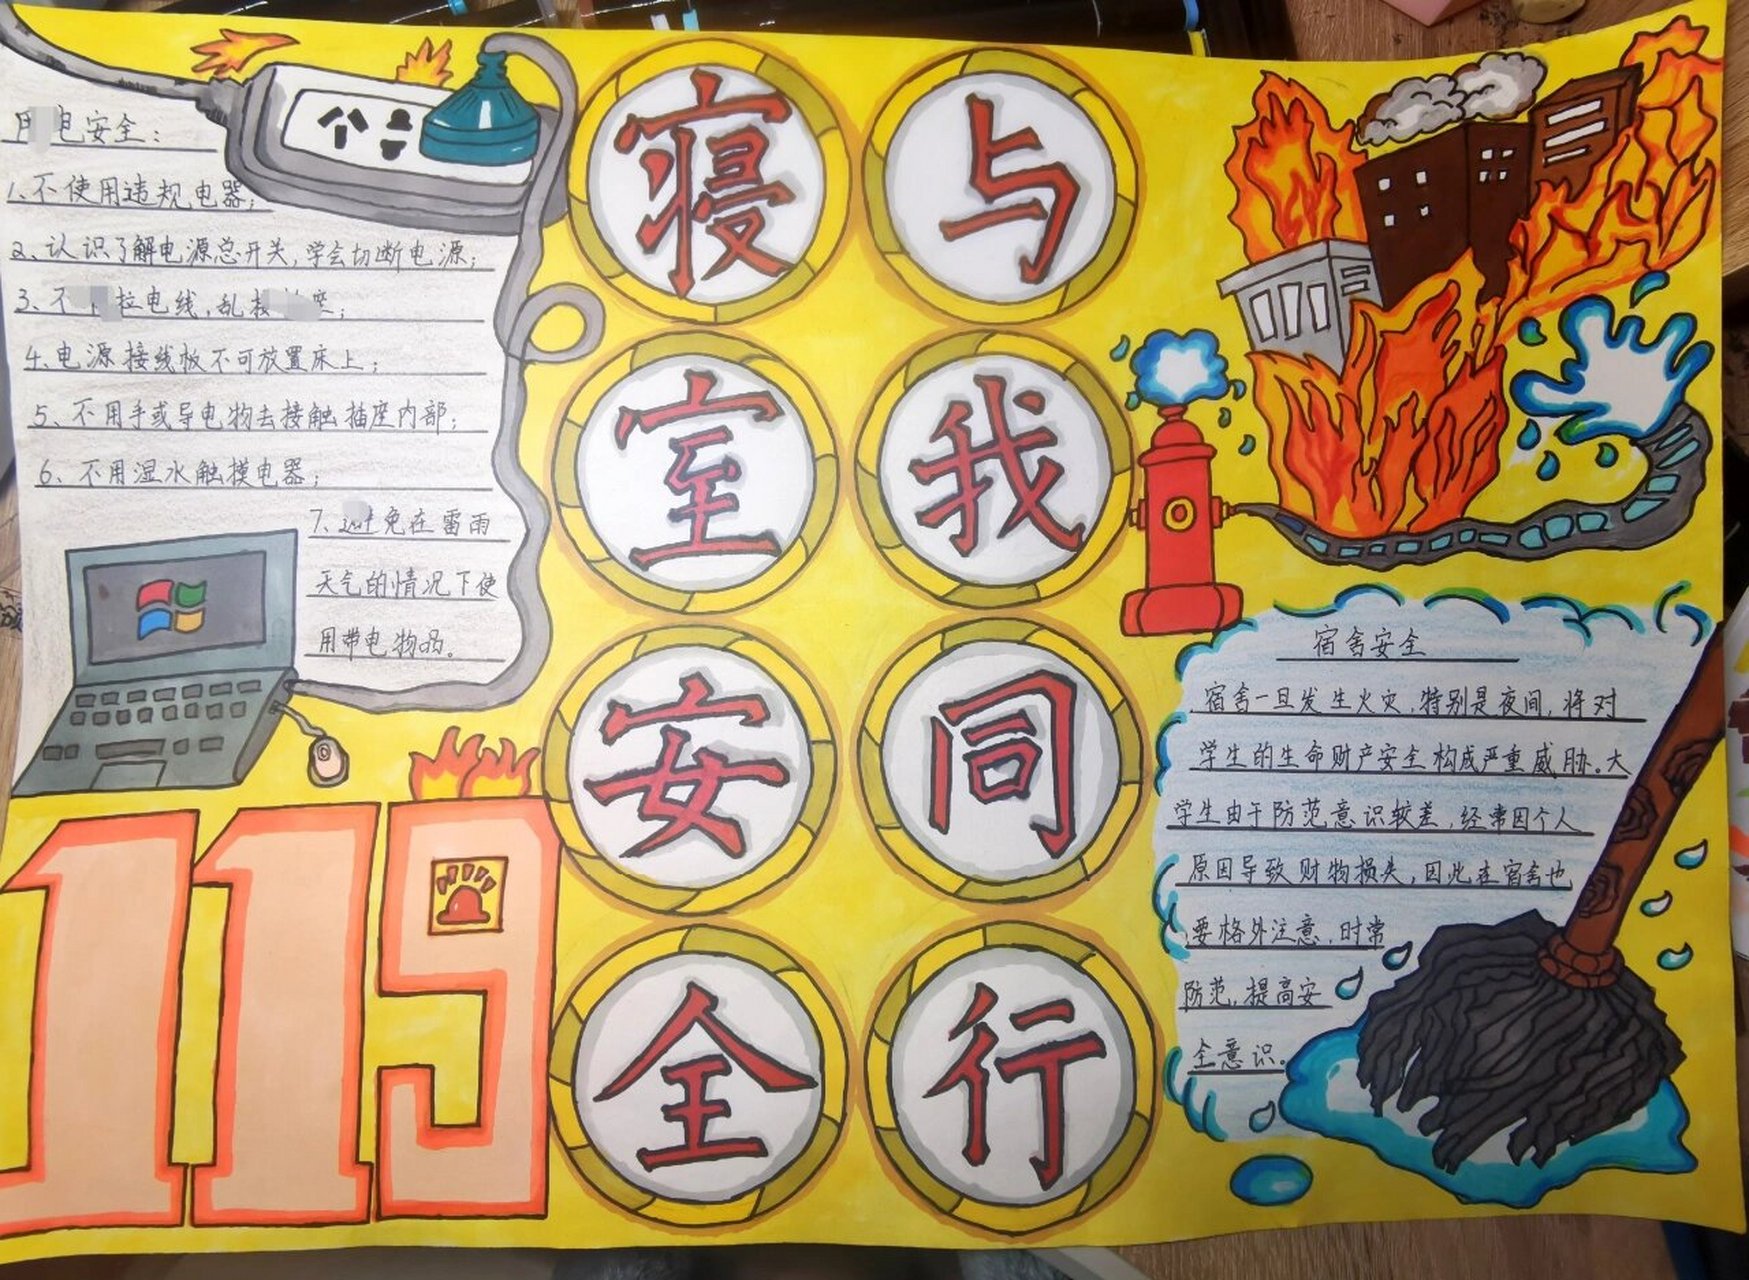 用电安全：
1、不使用违规电器；
2、认识了解电源总开关，学会切断电源；
3、不拉电线，乱接座；
4、电源接线板不可放置床上；
5、不用手或导电物去接触插座内部；
6、不用湿水触摸电器；
7、避免在雷雨
天气的情况下使
用带电物品。
119
寝室安全
与我同行
宿舍安全
宿舍一旦发生火灾，特别是夜间，将对
学生的生命财产安全构成严重威胁。大
学生由于防范意识较差，经常因个人
原因导致财物损失，因此在宿舍也
要格外注意，时常
防范，提高安
全意识。